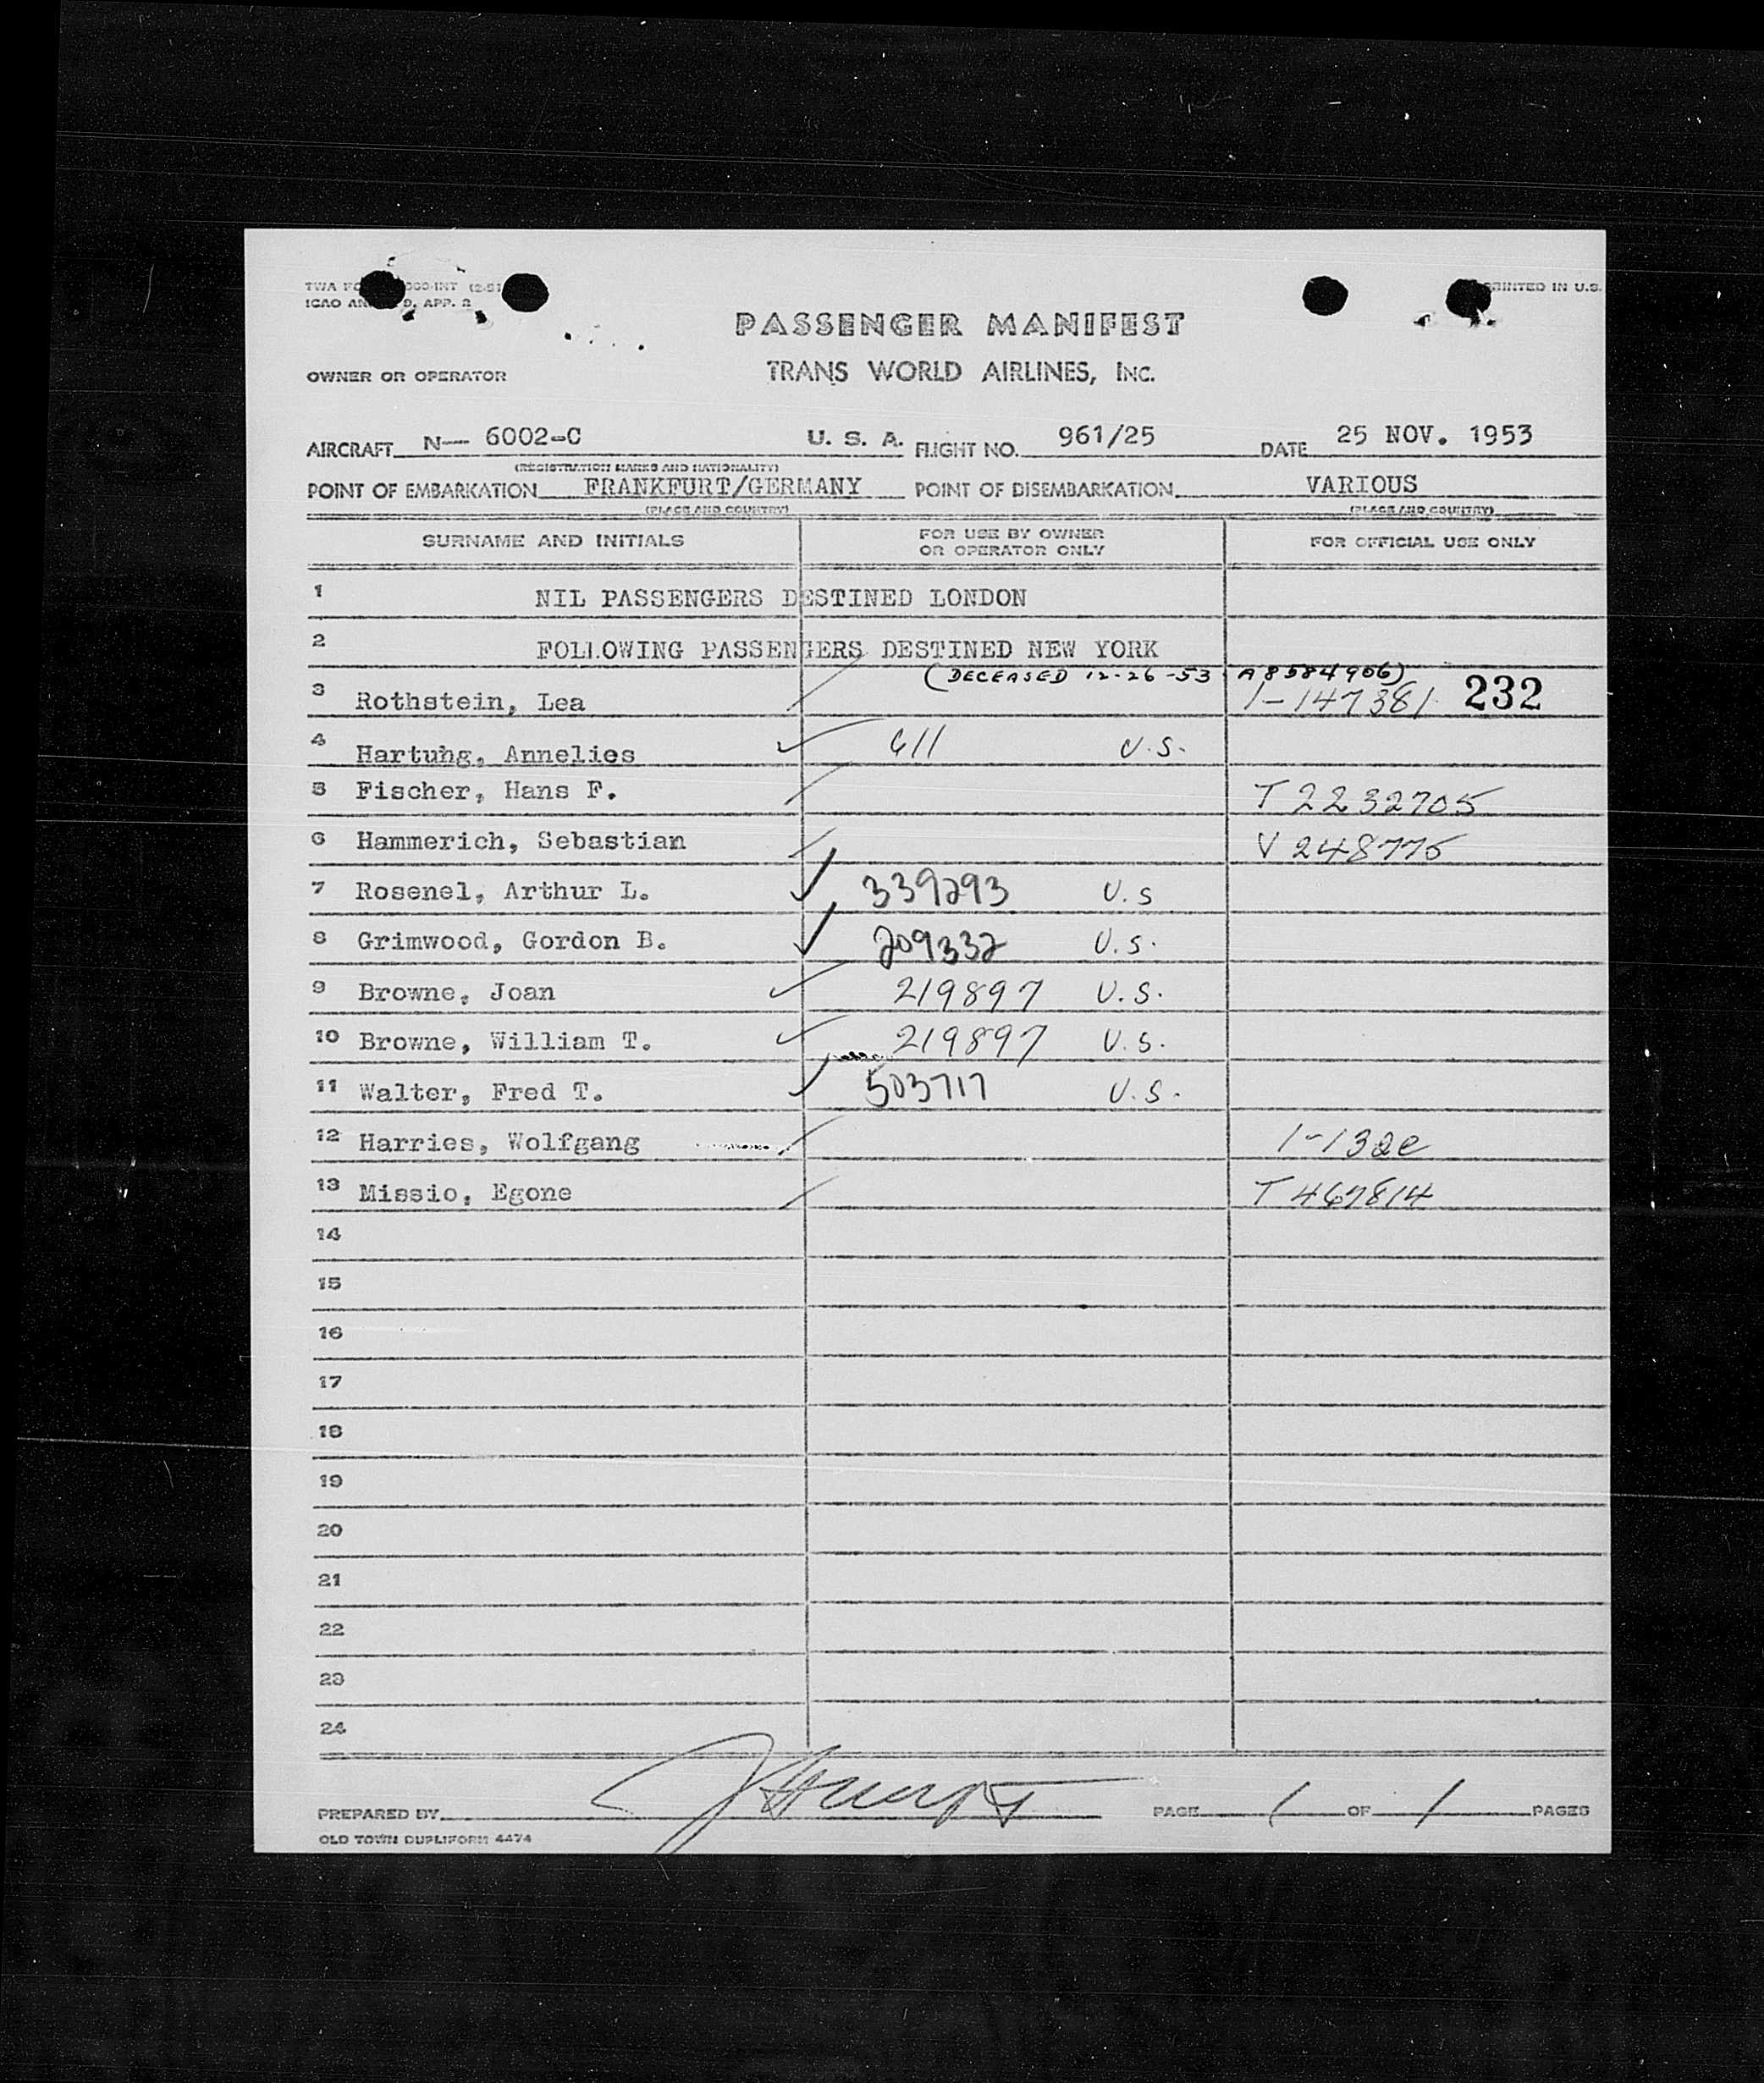 TWA FO 000-INT (2-51
ICAO AN 9, APP. 2
PRINTED IN U.S.
PASSENGER MANIFEST
OWNER OR OPERATOR TRANS WORLD AIRLINES, INC.
AIRCRAFT N— 6002-C U. S. A. FLIGHT NO. 961/25 DATE 25 NOV. 1953
(REGISTRATION MARKS AND NATIONALITY)
POINT OF EMBARKATION FRANKFURT/GERMANY POINT OF DISEMBARKATION VARIOUS
(PLACE AND COUNTRY) (PLACE AND COUNTRY)
SURNAME AND INITIALS FOR USE BY OWNER OR OPERATOR ONLY FOR OFFICIAL USE ONLY
1 NIL PASSENGERS DESTINED LONDON
2 FOLLOWING PASSENGERS DESTINED NEW YORK
(DECEASED 12-26-53 A8584906)
3 Rothstein, Lea 1-147381 232
4 Hartuhg, Annelies 611 U.S.
5 Fischer, Hans F. T2232705
6 Hammerich, Sebastian V248775
7 Rosenel, Arthur L. 339293 U.S
8 Grimwood, Gordon B. 209332 U.S.
9 Browne, Joan 219897 U.S.
10 Browne, William T. 219897 U.S.
11 Walter, Fred T. 503717 U.S.
12 Harries, Wolfgang
13 Missio, Egone T467814
14
15
16
17
18
19
20
21
22
23
24
PREPARED BY PAGE 1 OF 1 PAGES
OLD TOWN DUPLIFORM 4474